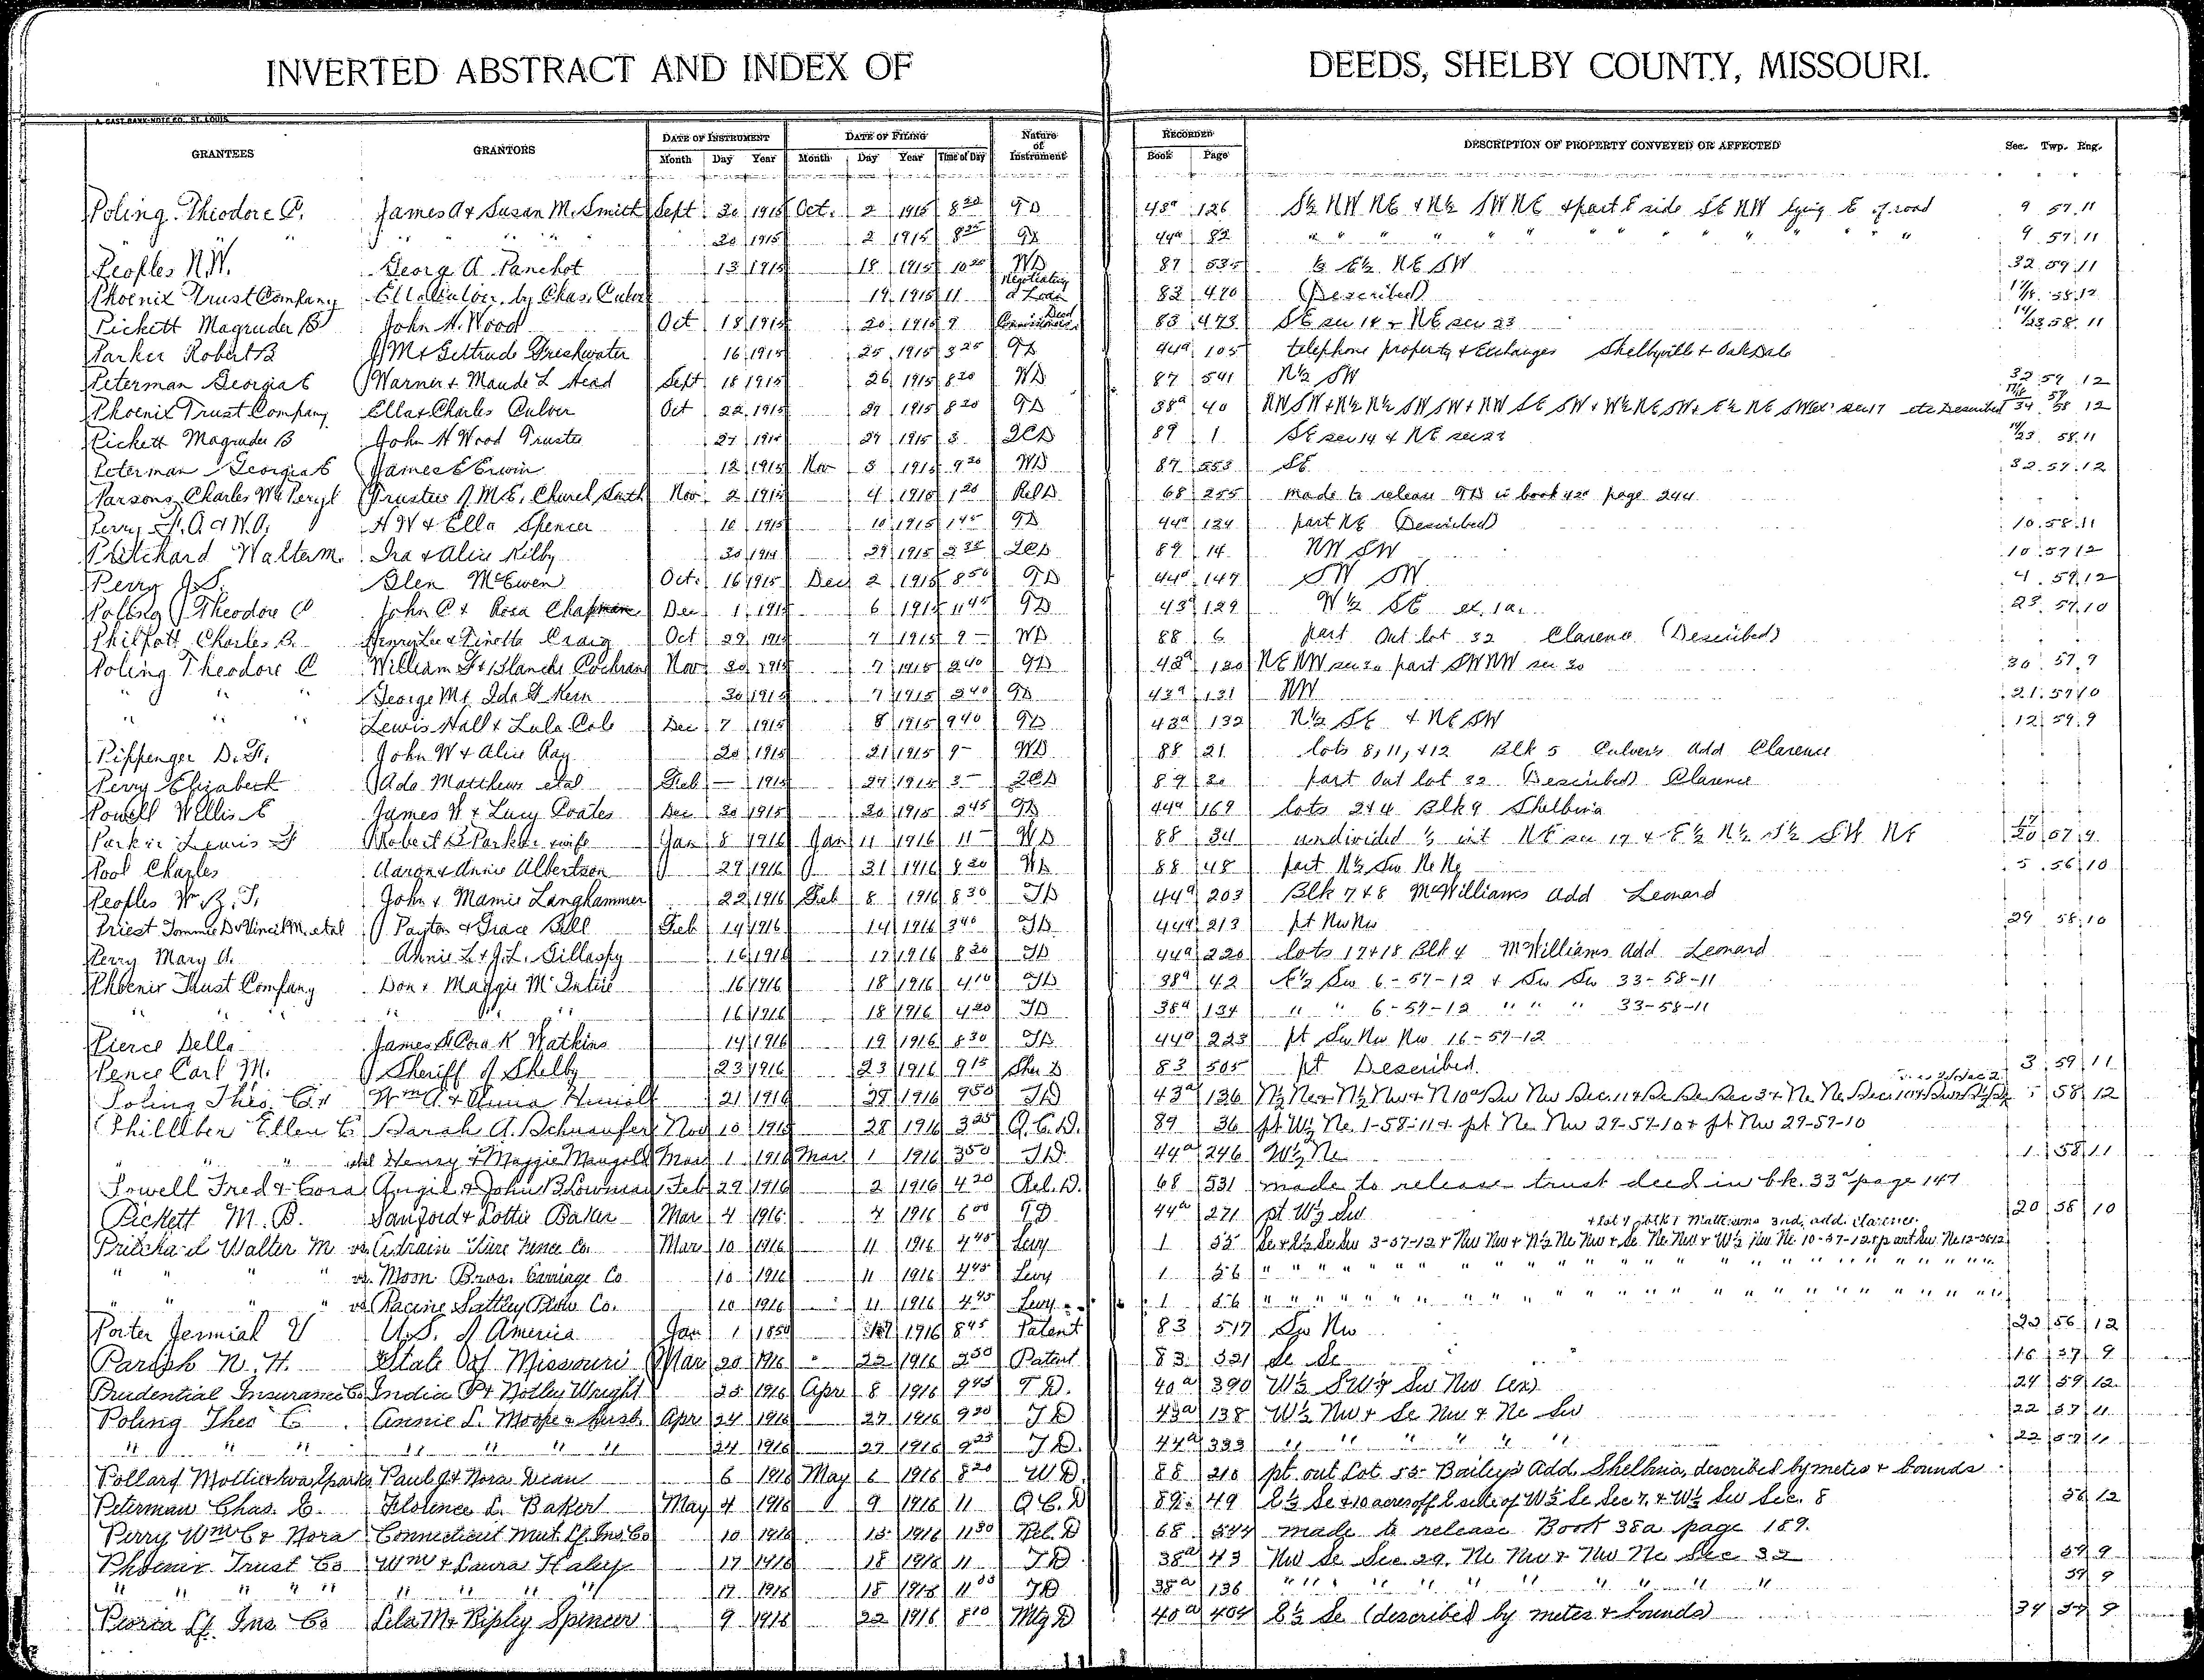 INVERTED ABSTRACT AND INDEX OF DEEDS, SHELBY COUNTY, MISSOURI.
GRANTEES GRANTORS DATE OF INSTRUMENT DATE OF FILING Nature of Instrument RECORDED DESCRIPTION OF PROPERTY CONVEYED OR AFFECTED Sec. Twp. Rng.
Month Day Year Month Day Year Time of Day Book Page
Poling Theodore C. James A + Susan M. Smith Sept. 20 1915 Oct. 2 1915 8 20 TD 43a 126 S½ NW NE + N½ SW NE + part E side SE NW lying E of road 9 57 11
" " 20 1915 2 1915 8 25 TD 44a 82 " " " " 9 57 11
Peoples N.W. George A Panchot 13 1915 18 1915 10 20 WD 87 535 E½ NE SW 32 59 11
Phoenix Trust Company Ella Culver by Chas. Culver 19 1915 11 Negotiating a Loan 83 470 (Described) 58 12
Pickett Magruder B John H. Wood Oct 18 1915 20 1915 9 Commissioners Deed 83 473 SE sec 14 + NE sec 23 14/23 58 11
Parker Robert B J M + Gertrude Freshwater 16 1915 25 1915 3 25 TD 44a 105 telephone property + Exchanges Shelbyville + Oakdale
Peterman Georgia E Warner + Maude L Head Sept 18 1915 26 1915 8 20 WD 87 541 N½ SW 32 59 12
Phoenix Trust Company Ella + Charles Culver Oct 22 1915 29 1915 8 20 TD 38a 40 NW SW + N½ N½ SW SW + NW SE SW + W½ NE SW + E½ NE SW sec 17 etc Described 58 12
Pickett Magruder B John H Wood Trustee 27 1915 29 1915 3 QCD 89 1 SE sec 14 + NE sec 23 14/23 58 11
Peterman Georgia E James E Erwin 12 1915 Nov 3 1915 9 20 WD 87 553 SE 32 59 12
Parsons Charles W + Peryl Trustees of M.E. Church South Nov. 2 1915 4 1915 1 20 Rel D 68 255 made to release TD in book 42a page 244
Perry H.A. + W.A. H W + Ella Spencer 10 1915 10 1915 1 45 TD 44a 124 part NE (Described) 10 58 11
Pritchard Walter M. Ira + Alice Kilby 30 1914 29 1915 2 35 QCD 89 14 NW SW 10 57 12
Perry J.S. Glen McEwen Oct. 16 1915 Dec 2 1915 8 50 TD 44a 147 SW SW 4 59 12
Poling Theodore C John C + Rosa Chapman Dec 1 1915 6 1915 11 45 TD 43a 129 W½ SE ex. 1 ac. 23 57 10
Philpott Charles B. Henry Lee + Finetta Craig Oct 29 1915 7 1915 9 - WD 88 6 part Out lot 32 Clarence (Described)
Poling Theodore C William F + Blanche Cochran Nov 30 1915 7 1915 2 40 TD 43a 130 NE NW sec 30 part SW NW sec 30 30 57 9
" " " George M + Ida F Kern 30 1915 7 1915 2 40 TD 43a 131 NW 21 57 10
" " " Lewis Hall + Lula Cole Dec 7 1915 8 1915 9 40 TD 43a 132 N½ SE + NE SW 12 59 9
Pippenger D.F. John W + Alice Ray 20 1915 21 1915 9 - WD 88 21 lots 8, 11, + 12 Blk 5 Culvers add Clarence
Perry Elizabeth Ada Matthews et al Feb - 1915 24 1915 3 - QCD 89 20 part Out lot 32 (Described) Clarence
Powell Willis E James W + Lucy Coates Dec 30 1915 30 1915 2 45 TD 44a 169 lots 2 + 4 Blk 9 Shelbina
Parker Lewis F Robert B Parker + wife Jan 8 1916 Jan 11 1916 11 - WD 88 34 undivided ½ int NE sec 17 + E½ N½ S½ SW NE 17/20 57 9
Pool Charles Aaron + Annie Albertson 29 1916 31 1916 8 20 WD 88 48 part N½ Sw Ne Ne 5 56 10
Peoples Wm B.T. John + Mamie Langhammer 22 1916 Feb 8 1916 8 30 TD 44a 203 Blk 7 + 8 McWilliams add Leonard
Priest Tommie D + Vincil M. et al J Payton + Grace Bell Feb 14 1916 14 1916 3 40 TD 44a 213 pt Nw Nw 29 58 10
Perry Mary A. Annie L + J.L. Gillaspy 16 1916 17 1916 8 20 TD 44a 220 lots 17 + 18 Blk 4 McWilliams Add Leonard
Phoenix Trust Company Don + Maggie McIntire 16 1916 18 1916 4 10 TD 38a 42 E½ Sw 6-57-12 + Sw Sw 33-58-11
" " " 16 1916 18 1916 4 20 TD 38a 134 " " 6-57-12 " " " 33-58-11
Pierce Della James S + Cora K Watkins 14 1916 19 1916 8 30 TD 44a 223 pt Sw Nw Nw 16-57-12
Pence Carl M. Sheriff of Shelby 23 1916 23 1916 9 15 Sher D 83 505 pt Described. 3 59 11
Poling Theo. C. Wm A. + Anna 21 1916 28 1916 9 50 TD 43a 136 N½ Ne + N½ Nw + N 10a Sw Nw Sec 11 + Se Se Sec 3 + Ne Ne Sec 10 58 12
Philliber Ellen E Sarah A. Schnaufer Nov 10 1915 28 1916 3 25 Q.C.D. 89 36 pt W½ Ne 1-58-11 + pt Ne Nw 29-59-10 + pt Nw 29-59-10
" " " et al Henry + Maggie Mangold Mar 1 1916 Mar 1 1916 3 50 TD. 44a 246 W½ Ne 1 58 11
Powell Fred + Cora Angie + John B Lowman Feb 29 1916 2 1916 4 20 Rel. D. 68 531 made to release trust deed in bk. 33a page 147
Pickett M. B. Sanford + Lottie Baker Mar 4 1916 4 1916 6 00 TD 44a 271 pt W½ Sw 20 58 10
+ lot 4 blk 1 Matthews 2nd. add. Clarence.
Pritchard Walter M vs. Adrain Wire Fence Co. Mar 10 1916 11 1916 4 45 Levy 1 55 Se + E½ Se Sw 3-57-12 + Nw Nw + N½ Ne Nw + Se Ne Nw + W½ Nw Ne 10-57-12 + part Sw Ne 12-56-12
" " " vs. Moon Bros. Carriage Co 10 1916 11 1916 4 45 Levy 1 56 " " " "
" " " vs Racine Sattley Plow Co. 10 1916 11 1916 4 45 Levy 1 56 " " " "
Porter Jermiah V U.S. of America Jan 1 1850 17 1916 8 45 Patent 83 517 Sw Nw 23 56 12
Parish N. H. State of Missouri Mar 20 1916 " 22 1916 2 50 Patent 83 521 Se Se 16 57 9
Prudential Insurance Co India P + Notley Wright 25 1916 Apr 8 1916 9 45 T D. 40a 390 W½ SW + Sw Nw (ex) 24 59 12
Poling Theo C. Annie L. Moore + husb. Apr 24 1916 27 1916 9 20 T D 43a 138 W½ Nw + Se Nw + Ne Sw 22 57 11
" " " " " " " 24 1916 27 1916 9 25 T D. 44a 333 " " " " " " 22 57 11
Pollard Mollie + Iva Sparks Paul J + Nora Dean 6 1916 May 6 1916 8 20 W D. 88 210 pt. out Lot 53 Bailey's Add. Shelbina, described by metes + bounds
Peterman Chas. E. Florence L. Baker May 4 1916 9 1916 11 Q C. D 89 49 E½ Se + 10 acres off E side of W½ Se Sec 7. + W½ Sw Sec. 8 58 12
Perry Wm C + Nora Connecticut Mut. Lf. Ins. Co 10 1916 15 1916 11 30 Rel. D 68 544 made to release Book 38a page 189.
Phoenix Trust Co Wm + Laura Haley 17 1916 18 1916 11 T D 38a 43 Nw Se Sec 29. Ne Nw + Nw Ne Sec 32 57 9
" " " " " " " " 17 1916 18 1916 11 05 TD 38a 136 " " " " " " 57 9
Peoria Lf. Ins. Co Lela M + Ripley Spencer 9 1916 22 1916 8 10 Mtg D 40a 404 E½ Se (described by metes + bounds) 34 57 9